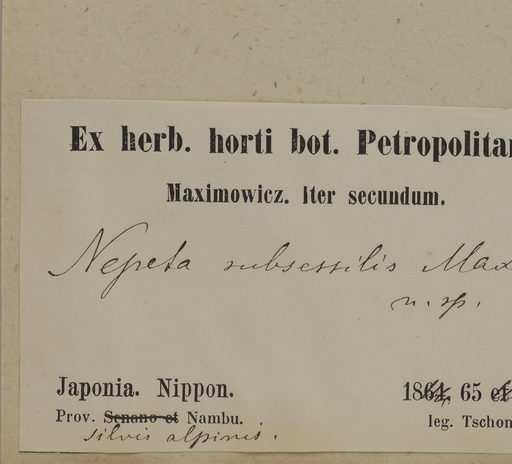 Ex herb. horti bot. Petropolitan
Maximowicz. Iter secundum.
Nepeta subsessilis Max
n. sp.
Japonia. Nippon.
1864. 65 et
Prov. Senano et Nambu.
leg. Tschon
silvis alpinis.